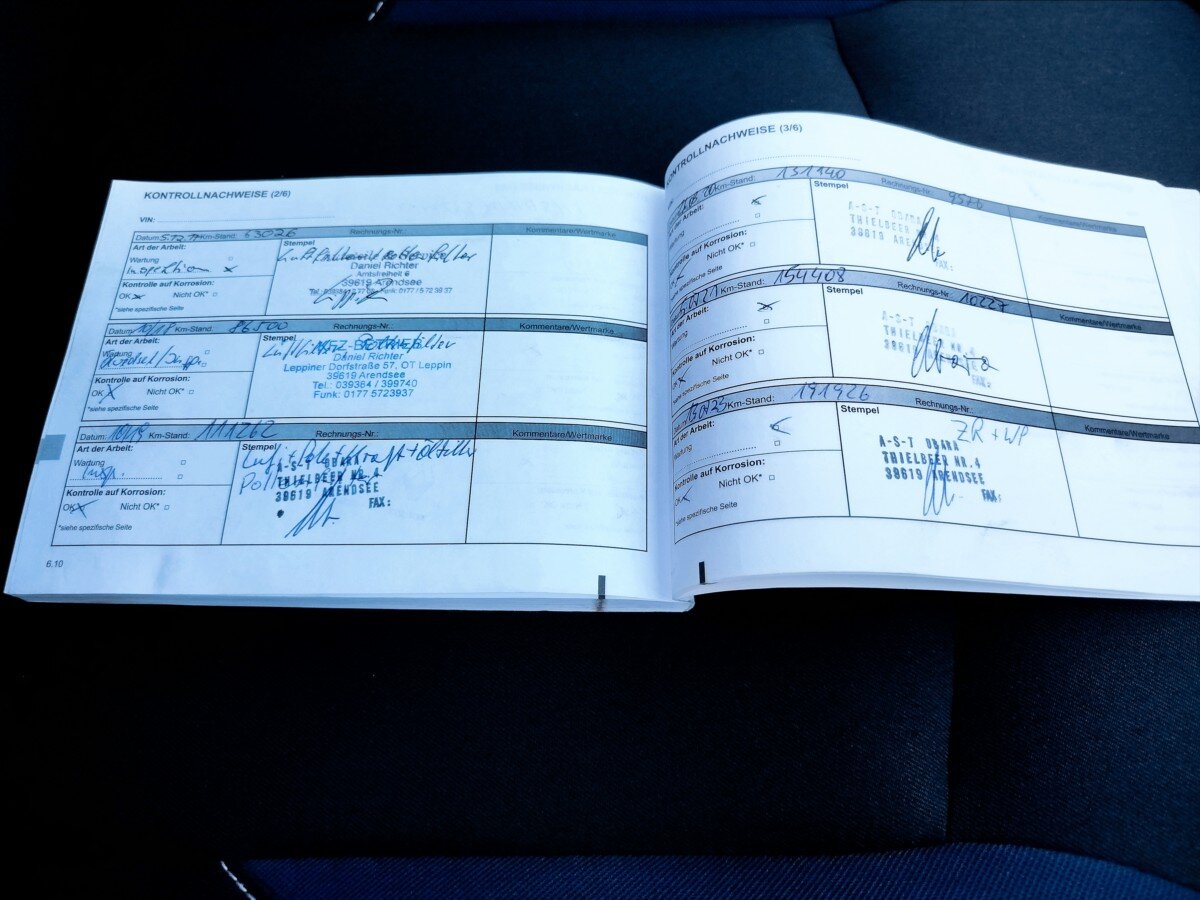 KONTROLLNACHWEISE (2/6)
VIN:
Datum: 5.12.17 Km-Stand: 63026 Rechnungs-Nr.: Kommentare/Wertmarke
Art der Arbeit: Stempel
Wartung
Inspektion x
Daniel Richter
Amtsfreiheit 6
39619 Arendsee
Kontrolle auf Korrosion:
OK x Nicht OK*
*siehe spezifische Seite
Datum: 10/18 Km-Stand: 86500 Rechnungs-Nr.: Kommentare/Wertmarke
Art der Arbeit: Stempel
Wartung
KFZ-BETRIEB
Daniel Richter
Leppiner Dorfstraße 57, OT Leppin
39619 Arendsee
Tel.: 039384 / 399740
Funk: 0177 5723937
Kontrolle auf Korrosion:
OK x Nicht OK*
*siehe spezifische Seite
Datum: 10/19 Km-Stand: 111262 Rechnungs-Nr.: Kommentare/Wertmarke
Art der Arbeit: Stempel
Wartung
Insp.
A-S-T OBARA
THIELBEER NR.4
39619 ARENDSEE
FAX:
Kontrolle auf Korrosion:
OK x Nicht OK*
*siehe spezifische Seite
6.10
KONTROLLNACHWEISE (3/6)
Km-Stand: 131140 Rechnungs-Nr.: 9576 Kommentare/Wertmarke
Stempel
Wartung
A-S-T OBARA
THIELBEER
39619 ARENDSEE
FAX:
Kontrolle auf Korrosion:
Nicht OK*
*siehe spezifische Seite
Km-Stand: 154408 Rechnungs-Nr.: 10227 Kommentare/Wertmarke
Art der Arbeit: Stempel
Wartung
A-S-T OBARA
THIELBEER
39619
FAX:
Kontrolle auf Korrosion:
OK Nicht OK*
*siehe spezifische Seite
Km-Stand: 191926 Rechnungs-Nr.: Kommentare/Wertmarke
Art der Arbeit: Stempel ZR + WP
Wartung
A-S-T OBARA
THIELBEER NR.4
39619 ARENDSEE
FAX:
Kontrolle auf Korrosion:
OK Nicht OK*
*siehe spezifische Seite